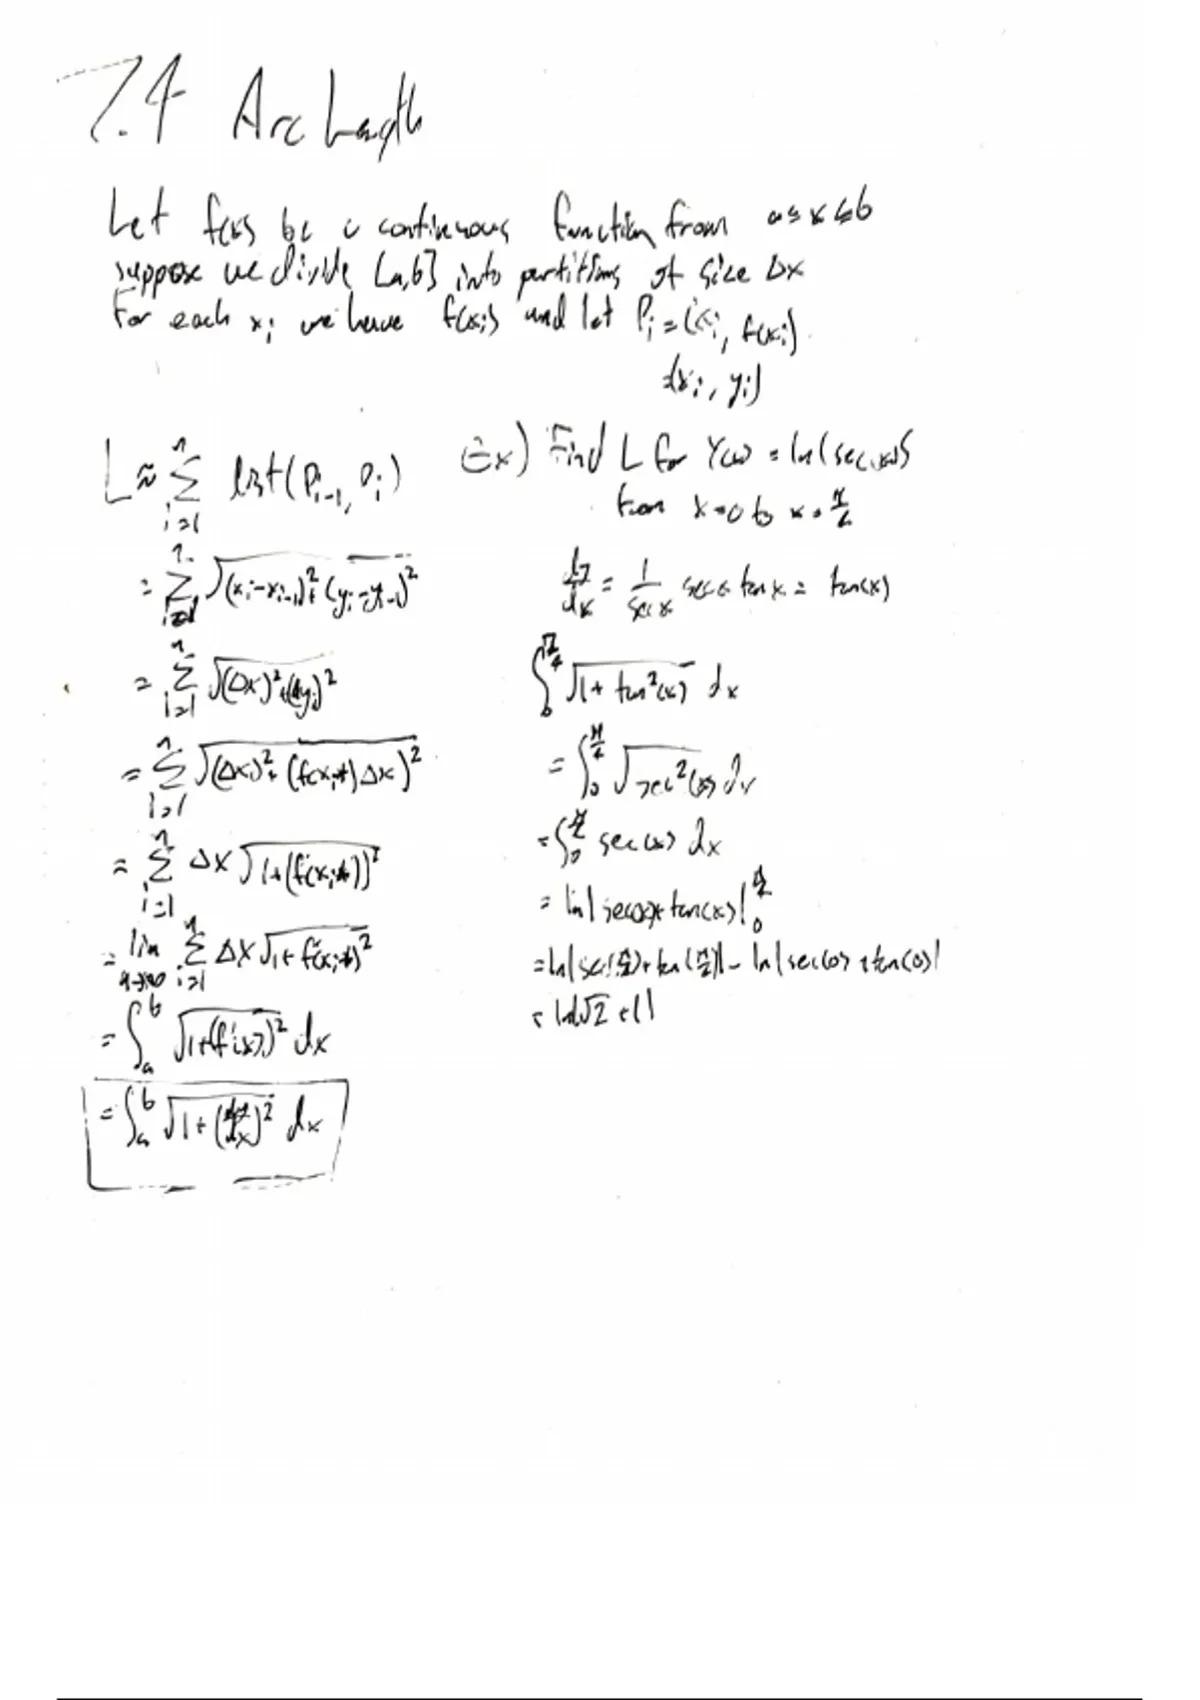 7.4 Arc Length
Let f(x) be a continuous function from a≤x≤b
suppose we divide [a,b] into partitions of size Δx
For each xᵢ we have f(xᵢ) and let Pᵢ = (xᵢ, f(xᵢ))
=(xᵢ, yᵢ)
L ≈ Σᵢ₌₁ⁿ dist(Pᵢ₋₁, Pᵢ)
= Σᵢ₌₁ⁿ √((xᵢ-xᵢ₋₁)² + (yᵢ-yᵢ₋₁)²)
= Σᵢ₌₁ⁿ √((Δx)² + (Δyᵢ)²)
= Σᵢ₌₁ⁿ √((Δx)² + (f(xᵢ*)Δx)²)
= Σᵢ₌₁ⁿ Δx √(1+(f'(xᵢ*))²)
= lim n→∞ Σᵢ₌₁ⁿ Δx √(1+f'(xᵢ*)²)
= ∫ₐᵇ √(1+(f'(x))²) dx
= ∫ₐᵇ √(1+(dy/dx)²) dx
Ex) Find L for y(x) = ln(sec(x))
from x=0 to x=π/4
dy/dx = 1/sec x sec x tan x = tan(x)
∫₀^(π/4) √(1+tan²(x)) dx
= ∫₀^(π/4) √(sec²(x)) dx
= ∫₀^(π/4) sec(x) dx
= ln|sec(x)+tan(x)| |₀^(π/4)
= ln|sec(π/4)+tan(π/4)| - ln|sec(0)+tan(0)|
= ln|√2+1|